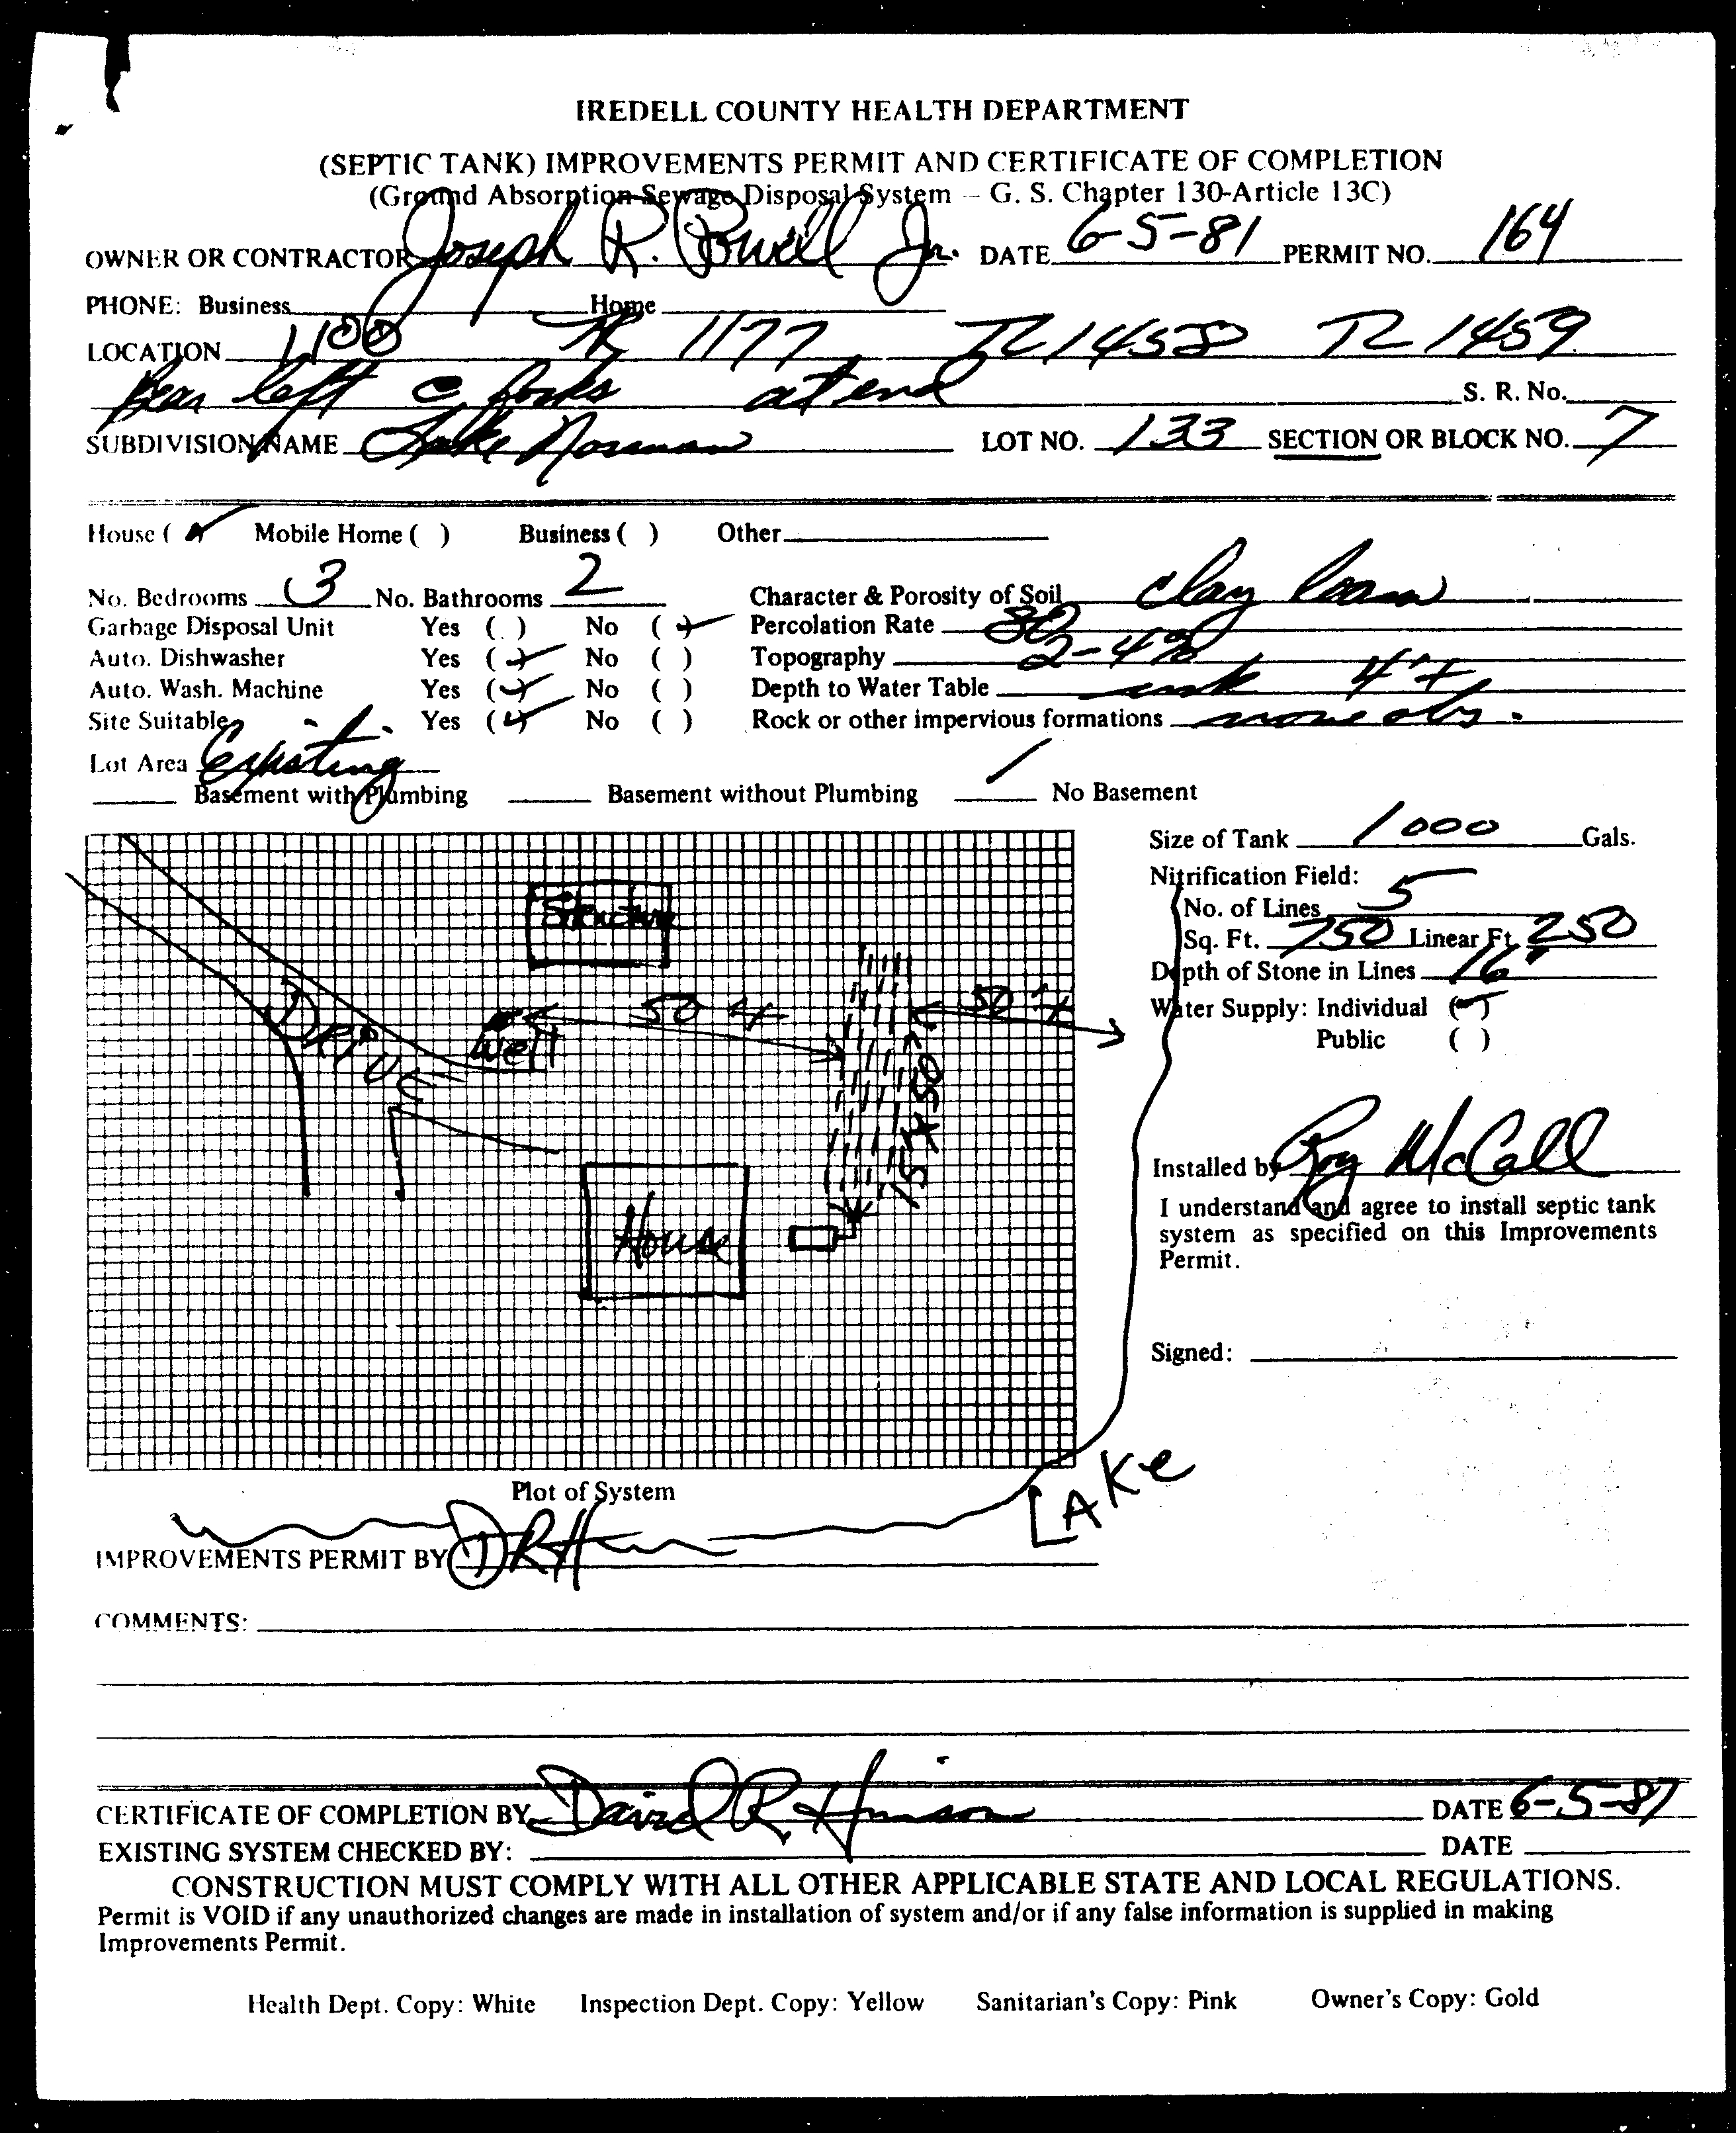 IREDELL COUNTY HEALTH DEPARTMENT
(SEPTIC TANK) IMPROVEMENTS PERMIT AND CERTIFICATE OF COMPLETION
(Ground Absorption Sewage Disposal System — G. S. Chapter 130-Article 13C)
OWNER OR CONTRACTOR Joseph R. Powell Jr. DATE 6-5-81 PERMIT NO. 164
PHONE: Business Home
LOCATION 1100 TR 1177 TL 1458 TL 1459
Bear left @ forks at end S. R. No.
SUBDIVISION NAME Lake Norman LOT NO. 133 SECTION OR BLOCK NO. 7
House ( ) Mobile Home ( ) Business ( ) Other
No. Bedrooms 3 No. Bathrooms 2 Character & Porosity of Soil clay loam
Garbage Disposal Unit Yes ( ) No (✓) Percolation Rate 80
Auto. Dishwasher Yes (✓) No ( ) Topography 2-4%
Auto. Wash. Machine Yes (✓) No ( ) Depth to Water Table 4'+
Site Suitable Yes (✓) No ( ) Rock or other impervious formations none obs.
Lot Area Existing
Basement with Plumbing Basement without Plumbing / No Basement
Size of Tank 1000 Gals.
Nitrification Field:
No. of Lines 5
Sq. Ft. 750 Linear Ft. 250
Depth of Stone in Lines 16"
Water Supply: Individual (✓)
Public ( )
Structure
50'+
50'+
Drive
Well
15 x 50
House
Installed by Roy McCall
I understand and agree to install septic tank
system as specified on this Improvements
Permit.
Signed:
LAKE
Plot of System
IMPROVEMENTS PERMIT BY DRH
COMMENTS:
CERTIFICATE OF COMPLETION BY David R Hinson DATE 6-5-87
EXISTING SYSTEM CHECKED BY: DATE
CONSTRUCTION MUST COMPLY WITH ALL OTHER APPLICABLE STATE AND LOCAL REGULATIONS.
Permit is VOID if any unauthorized changes are made in installation of system and/or if any false information is supplied in making
Improvements Permit.
Health Dept. Copy: White Inspection Dept. Copy: Yellow Sanitarian's Copy: Pink Owner's Copy: Gold